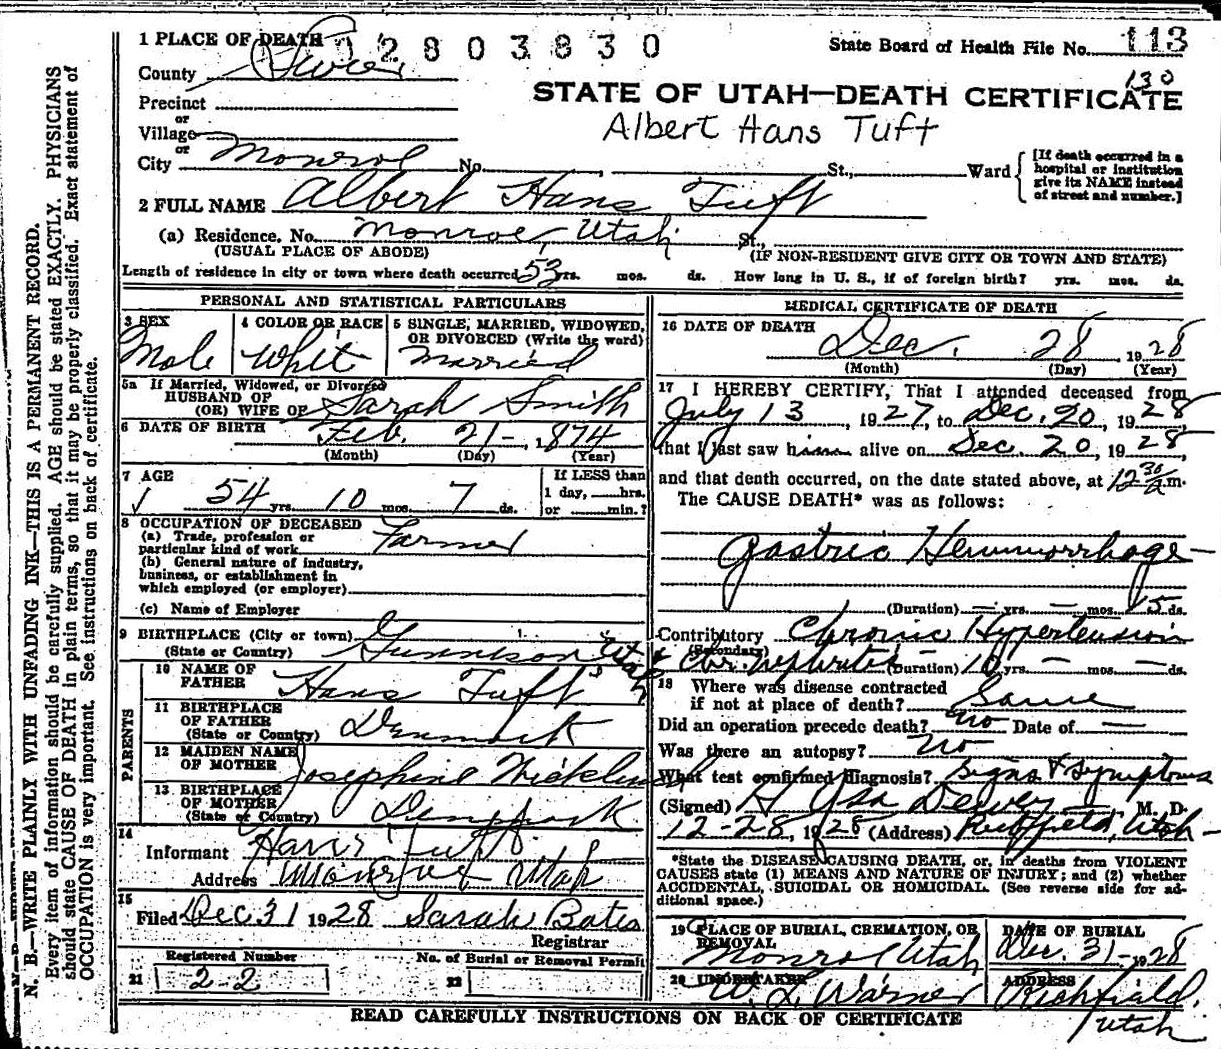 1 PLACE OF DEATH 02803830 State Board of Health File No. 113
County Sevier 130
STATE OF UTAH—DEATH CERTIFICATE
Precinct
or
Village
or
Albert Hans Tuft
City Monroe No. St., Ward
[If death occurred in a hospital or institution give its NAME instead of street and number.]
2 FULL NAME Albert Hans Tuft
(a) Residence. No. Monroe, Utah St.,
(USUAL PLACE OF ABODE) (IF NON-RESIDENT GIVE CITY OR TOWN AND STATE)
Length of residence in city or town where death occurred 53 yrs. mos. ds. How long in U. S., if of foreign birth? yrs. mos. ds.
PERSONAL AND STATISTICAL PARTICULARS
3 SEX 4 COLOR OR RACE 5 SINGLE, MARRIED, WIDOWED, OR DIVORCED (Write the word)
Male Whit Married
5a If Married, Widowed, or Divorced
HUSBAND OF
(OR) WIFE OF Sarah Smith
6 DATE OF BIRTH Feb. 21-, 1874
(Month) (Day) (Year)
7 AGE If LESS than
54 yrs. 10 mos. 7 ds. 1 day, hrs.
or min.?
8 OCCUPATION OF DECEASED
(a) Trade, profession or
particular kind of work Farmer
(b) General nature of industry,
business, or establishment in
which employed (or employer)
(c) Name of Employer
9 BIRTHPLACE (City or town)
(State or Country) Gunnison Utah
PARENTS
10 NAME OF
FATHER Hans Tuft
11 BIRTHPLACE
OF FATHER
(State or Country) Denmark
12 MAIDEN NAME
OF MOTHER Josephine
13 BIRTHPLACE
OF MOTHER
(State or Country) Denmark
14
Informant Hans Tuft
Address Monroe Utah
15
Filed Dec 31 1928 Sarah Bates
Registrar
Registered Number No. of Burial or Removal Permit
21 22 22
MEDICAL CERTIFICATE OF DEATH
16 DATE OF DEATH
Dec. 28, 1928
(Month) (Day) (Year)
17 I HEREBY CERTIFY, That I attended deceased from
July 13, 1927, to Dec. 20, 1928
that I last saw him alive on Dec. 20, 1928,
and that death occurred, on the date stated above, at 12 30 a m.
The CAUSE DEATH* was as follows:
Gastric Hemmorrhage
(Duration) — yrs. — mos. 15 ds.
Contributory Chronic Hypertension
(Secondary) & Chr. Nephritis (Duration) 10 yrs. — mos. — ds.
18 Where was disease contracted
if not at place of death? Same
Did an operation precede death? No Date of —
Was there an autopsy? No
What test confirmed diagnosis? Signs & Symptoms
(Signed) H Asa Dewey M. D.
12-28, 1928 (Address) Richfield, Utah
*State the DISEASE CAUSING DEATH, or, in deaths from VIOLENT
CAUSES state (1) MEANS AND NATURE OF INJURY; and (2) whether
ACCIDENTAL, SUICIDAL OR HOMICIDAL. (See reverse side for ad-
ditional space.)
19 PLACE OF BURIAL, CREMATION, OR REMOVAL DATE OF BURIAL
Monroe Utah Dec. 31-1928
20 UNDERTAKER ADDRESS
W. L. Warner Richfield, Utah
READ CAREFULLY INSTRUCTIONS ON BACK OF CERTIFICATE
N. B.—WRITE PLAINLY WITH UNFADING INK—THIS IS A PERMANENT RECORD.
Every item of information should be carefully supplied. AGE should be stated EXACTLY. PHYSICIANS
should state CAUSE OF DEATH in plain terms, so that it may be properly classified. Exact statement of
OCCUPATION is very important. See instructions on back of certificate.